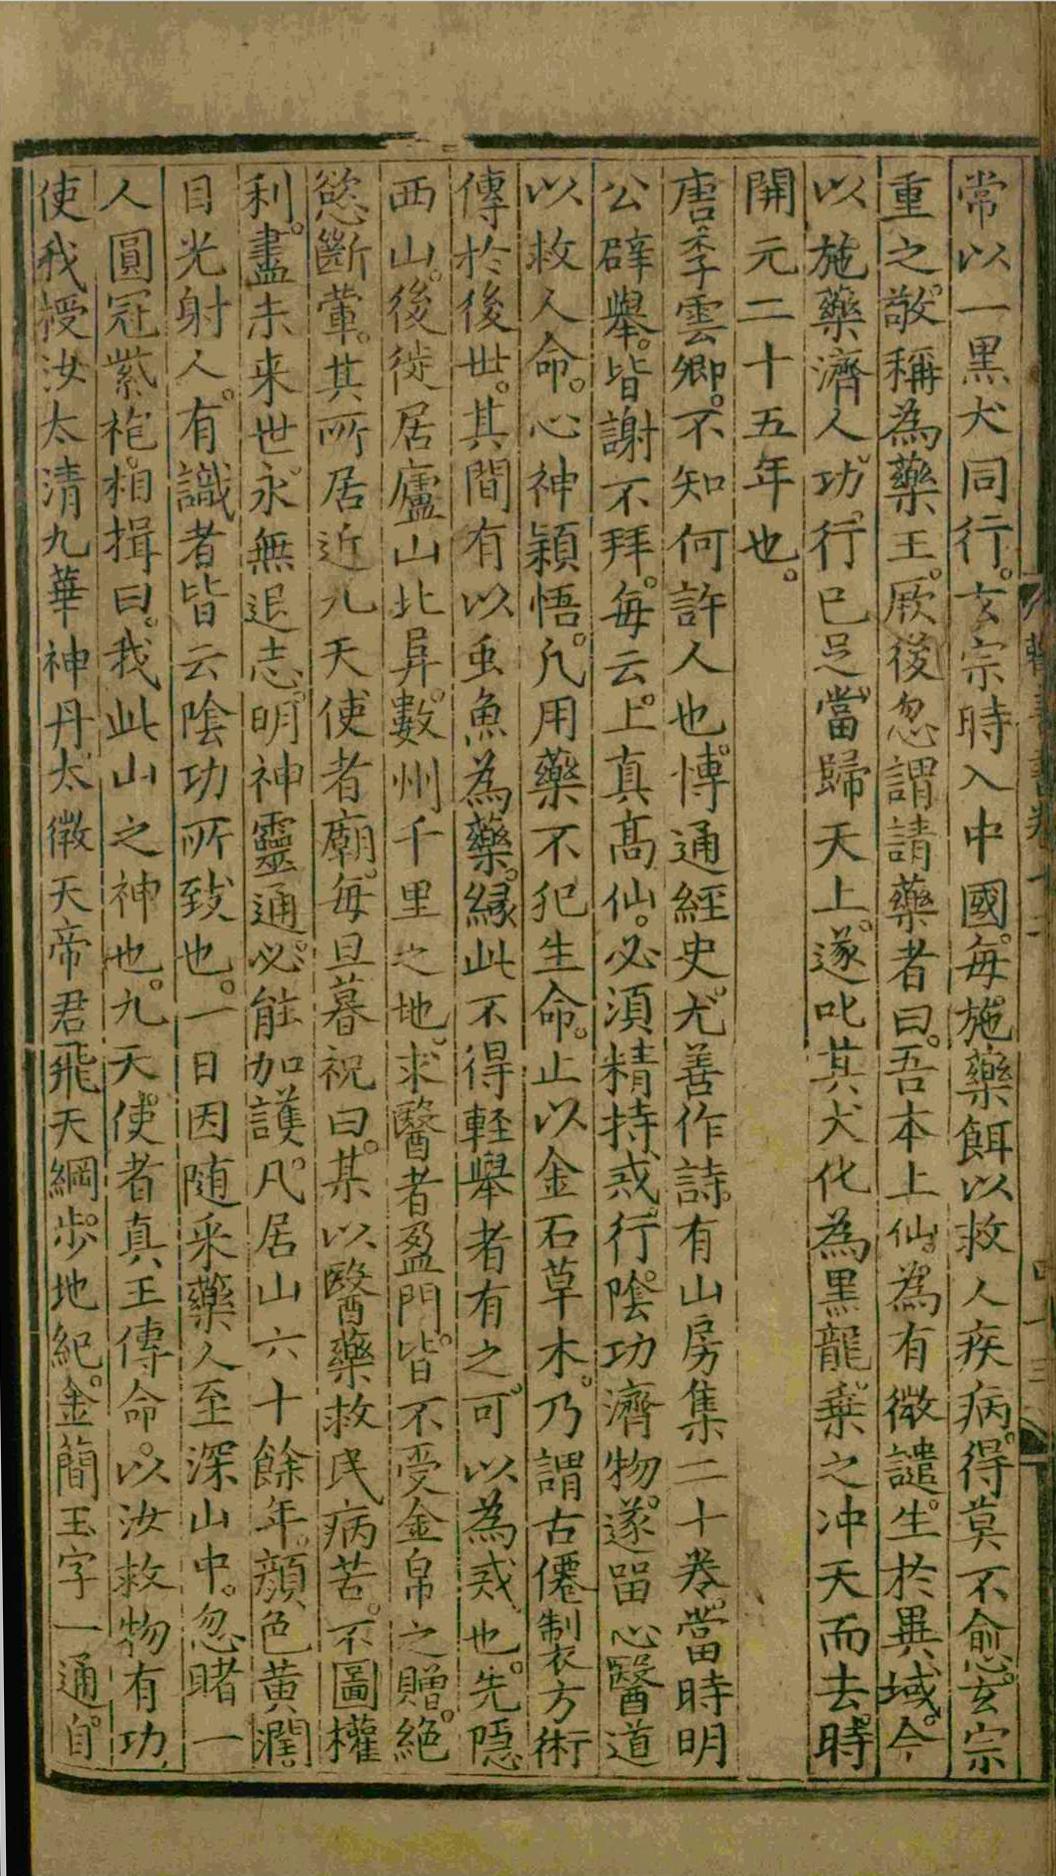 常以一黑犬同行。玄宗時入中國。每施藥餌以救人疾病。得莫不愈。玄宗
重之。敬稱為藥王。厥後忽謂請藥者曰。吾本上仙。為有微譴。生於異域。今
以施藥濟人。功行已足。當歸天上。遂叱其犬化為黑龍。乘之冲天而去。時
開元二十五年也。
唐李雲卿。不知何許人也。博通經史。尤善作詩。有山房集二十卷。當時明
公辟舉。皆謝不拜。每云。上真高仙。必須精持戒行。陰功濟物。遂留心醫道
以救人命。心神穎悟。凡用藥不犯生命。止以金石草木。乃謂古僊製方術
傳於後世。其間有以虫魚為藥。緣此不得輕舉者有之。可以為戒也。先隱
西山。後徙居廬山北昇。數州千里之地。求醫者盈門。皆不受金帛之贈。絕
慾斷葷。其所居近九天使者廟。每旦暮祝曰。某以醫藥救民病苦。不圖權
利。盡未来世。永無退志。明神靈通。必能加護。凡居山六十餘年。顏色黃潤
目光射人。有識者皆云陰功所致也。一日因随采藥人至深山中。忽睹一
人圓冠紫袍。相揖曰。我此山之神也。九天使者真王傳命。以汝救物有功
使我授汝太清九華神丹。太微天帝君飛天綱。步地紀。金簡玉字一通。自